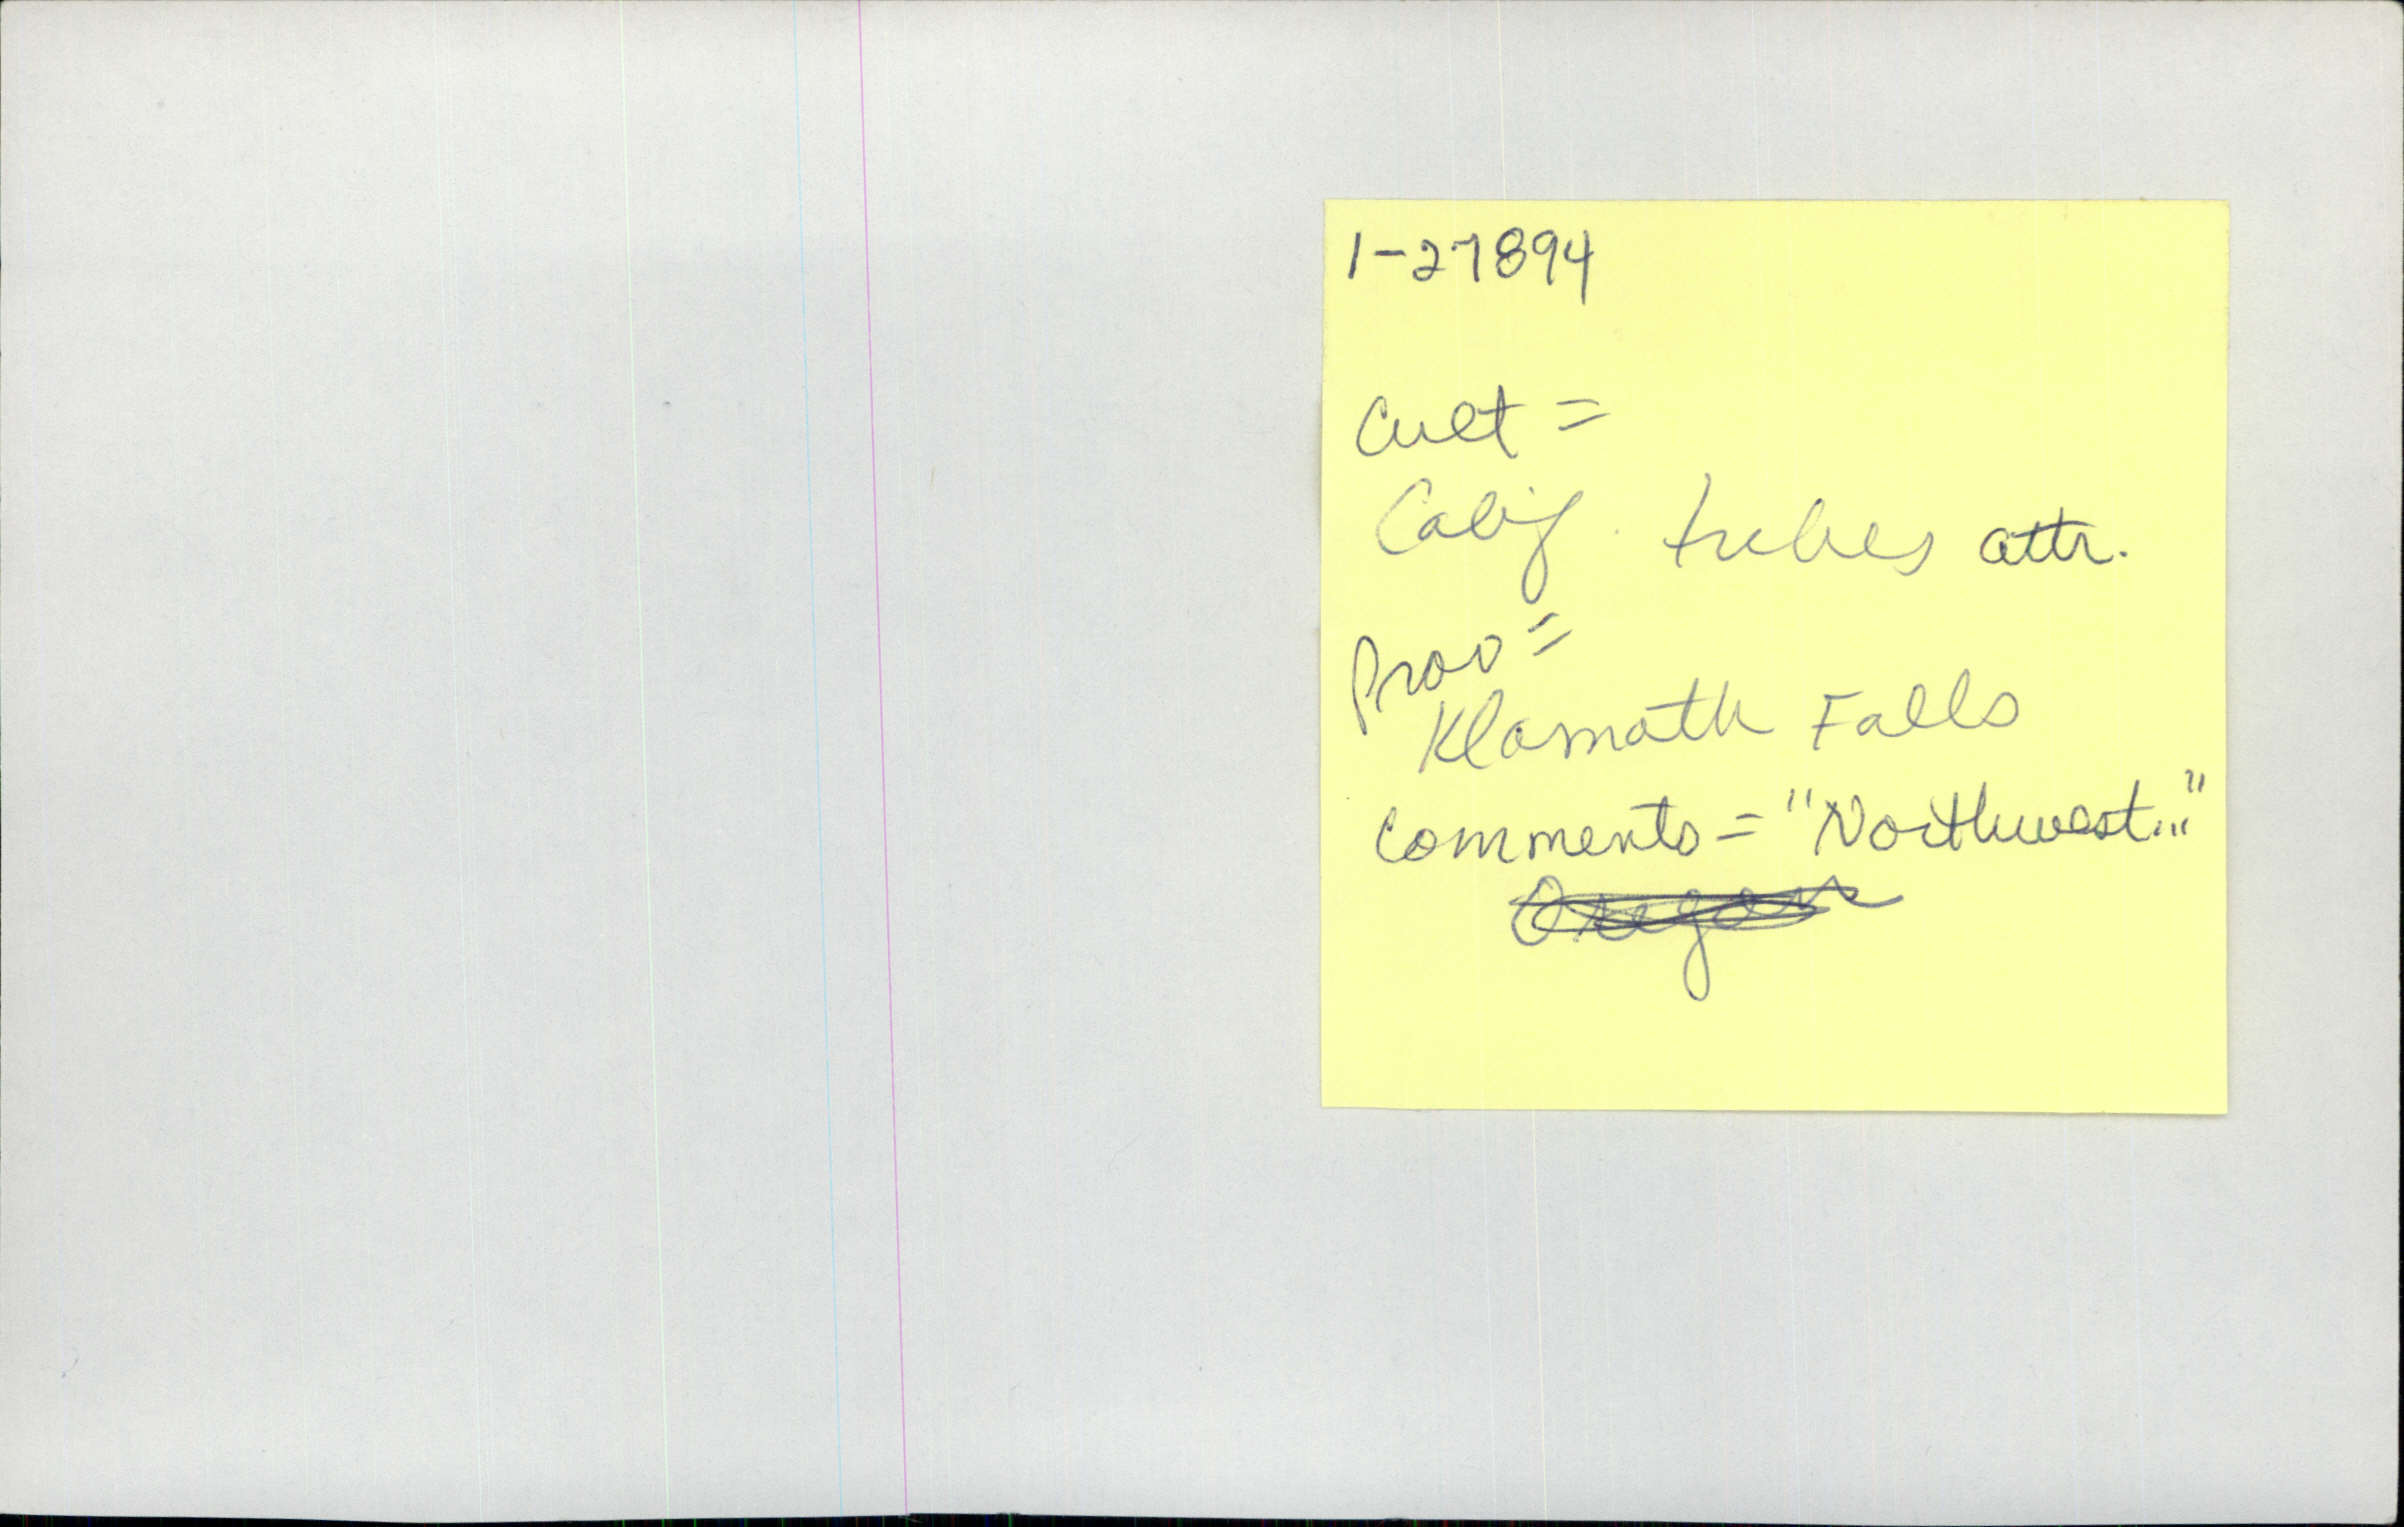 1-27894
Cult =
Calif. tribes attr.
Prov =
Klamath Falls
Comments = "Northwest..."
Oregon